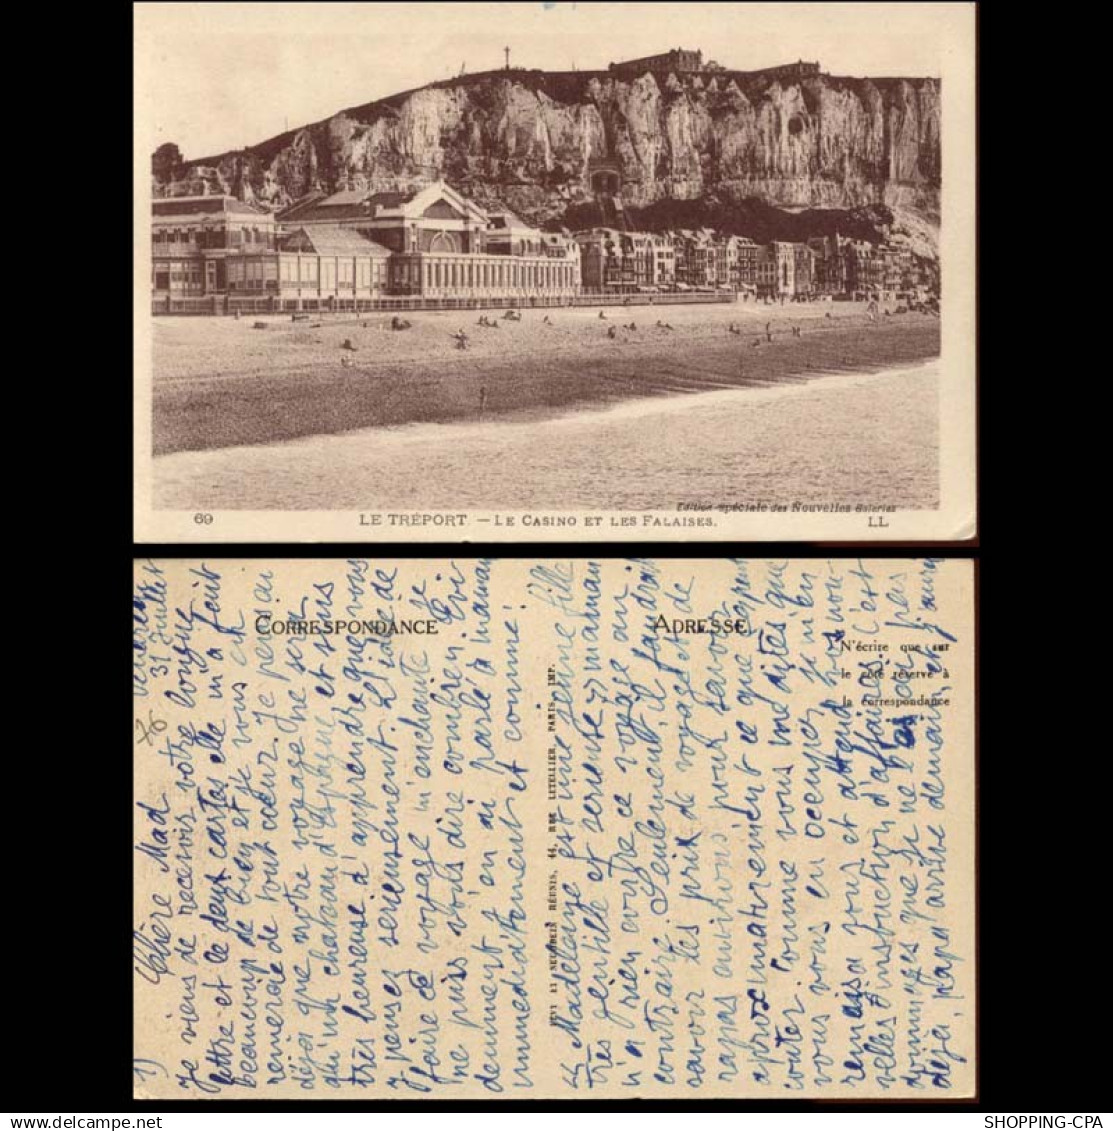 69
LE TRÉPORT — LE CASINO ET LES FALAISES.
Edition spéciale des Nouvelles Galeries
LL
CORRESPONDANCE
ADRESSE
N'écrire que sur
le côté réservé à
la correspondance
LEVY ET NEURDEIN RÉUNIS, 44, RUE LETELLIER, PARIS, IMP.
1) Vendredi
31 juillet
Chère Mad
Je viens de recevoir votre longue
lettre et le deux cartes elle m'a fait
beaucoup de bien et je vous en
remercie de tout cœur. Je peur au
déja que notre voyage ne sera
qu'un chateau d'Espagne, et suis
très heureuse d'apprendre que vous
y pensez serieusement. L'idé de
faire ce voyage m'enchante je
ne puis vous dire combien. Evi
demment j'en ai parlé à maman
immédiatement et comme
"Madelaine est une jeune fille
très gentille et serieuse" maman
n'a rien contre ce voyage au
contraire. Seulement il faudrait
savoir les prix de voyage et de
repas environs pour savoir
aproximativement ce que cela peut
couter. Comme vous me dites que
vous vous en occupez, je m'en
remets à vous et attend vos nou-
velles d'instruction d'affaires. C'est
dommages que je ne l'ai pas
déjà, papa arrive demain, et j'aurai
SHOPPING-CPA